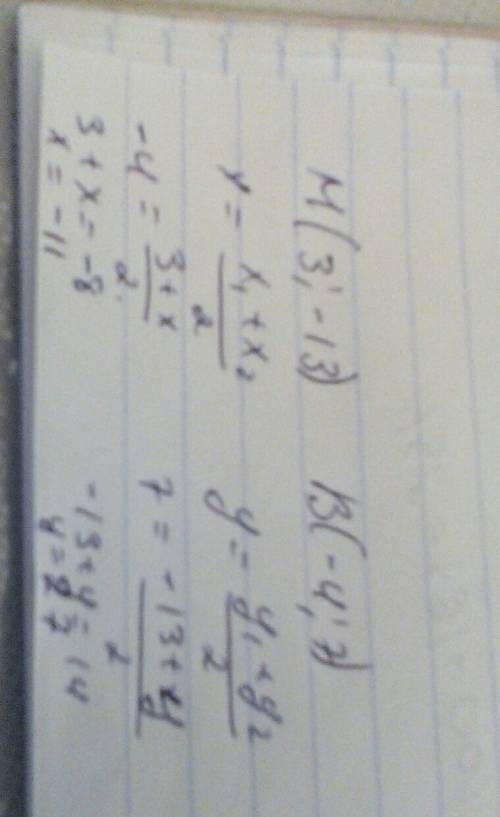 M(3;-13) B(-4;7)
x = x₁+x₂/2 y = y₁+y₂/2
-4 = 3+x/2 7 = -13+y/2
3+x=-8 -13+y=14
x=-11 y=27